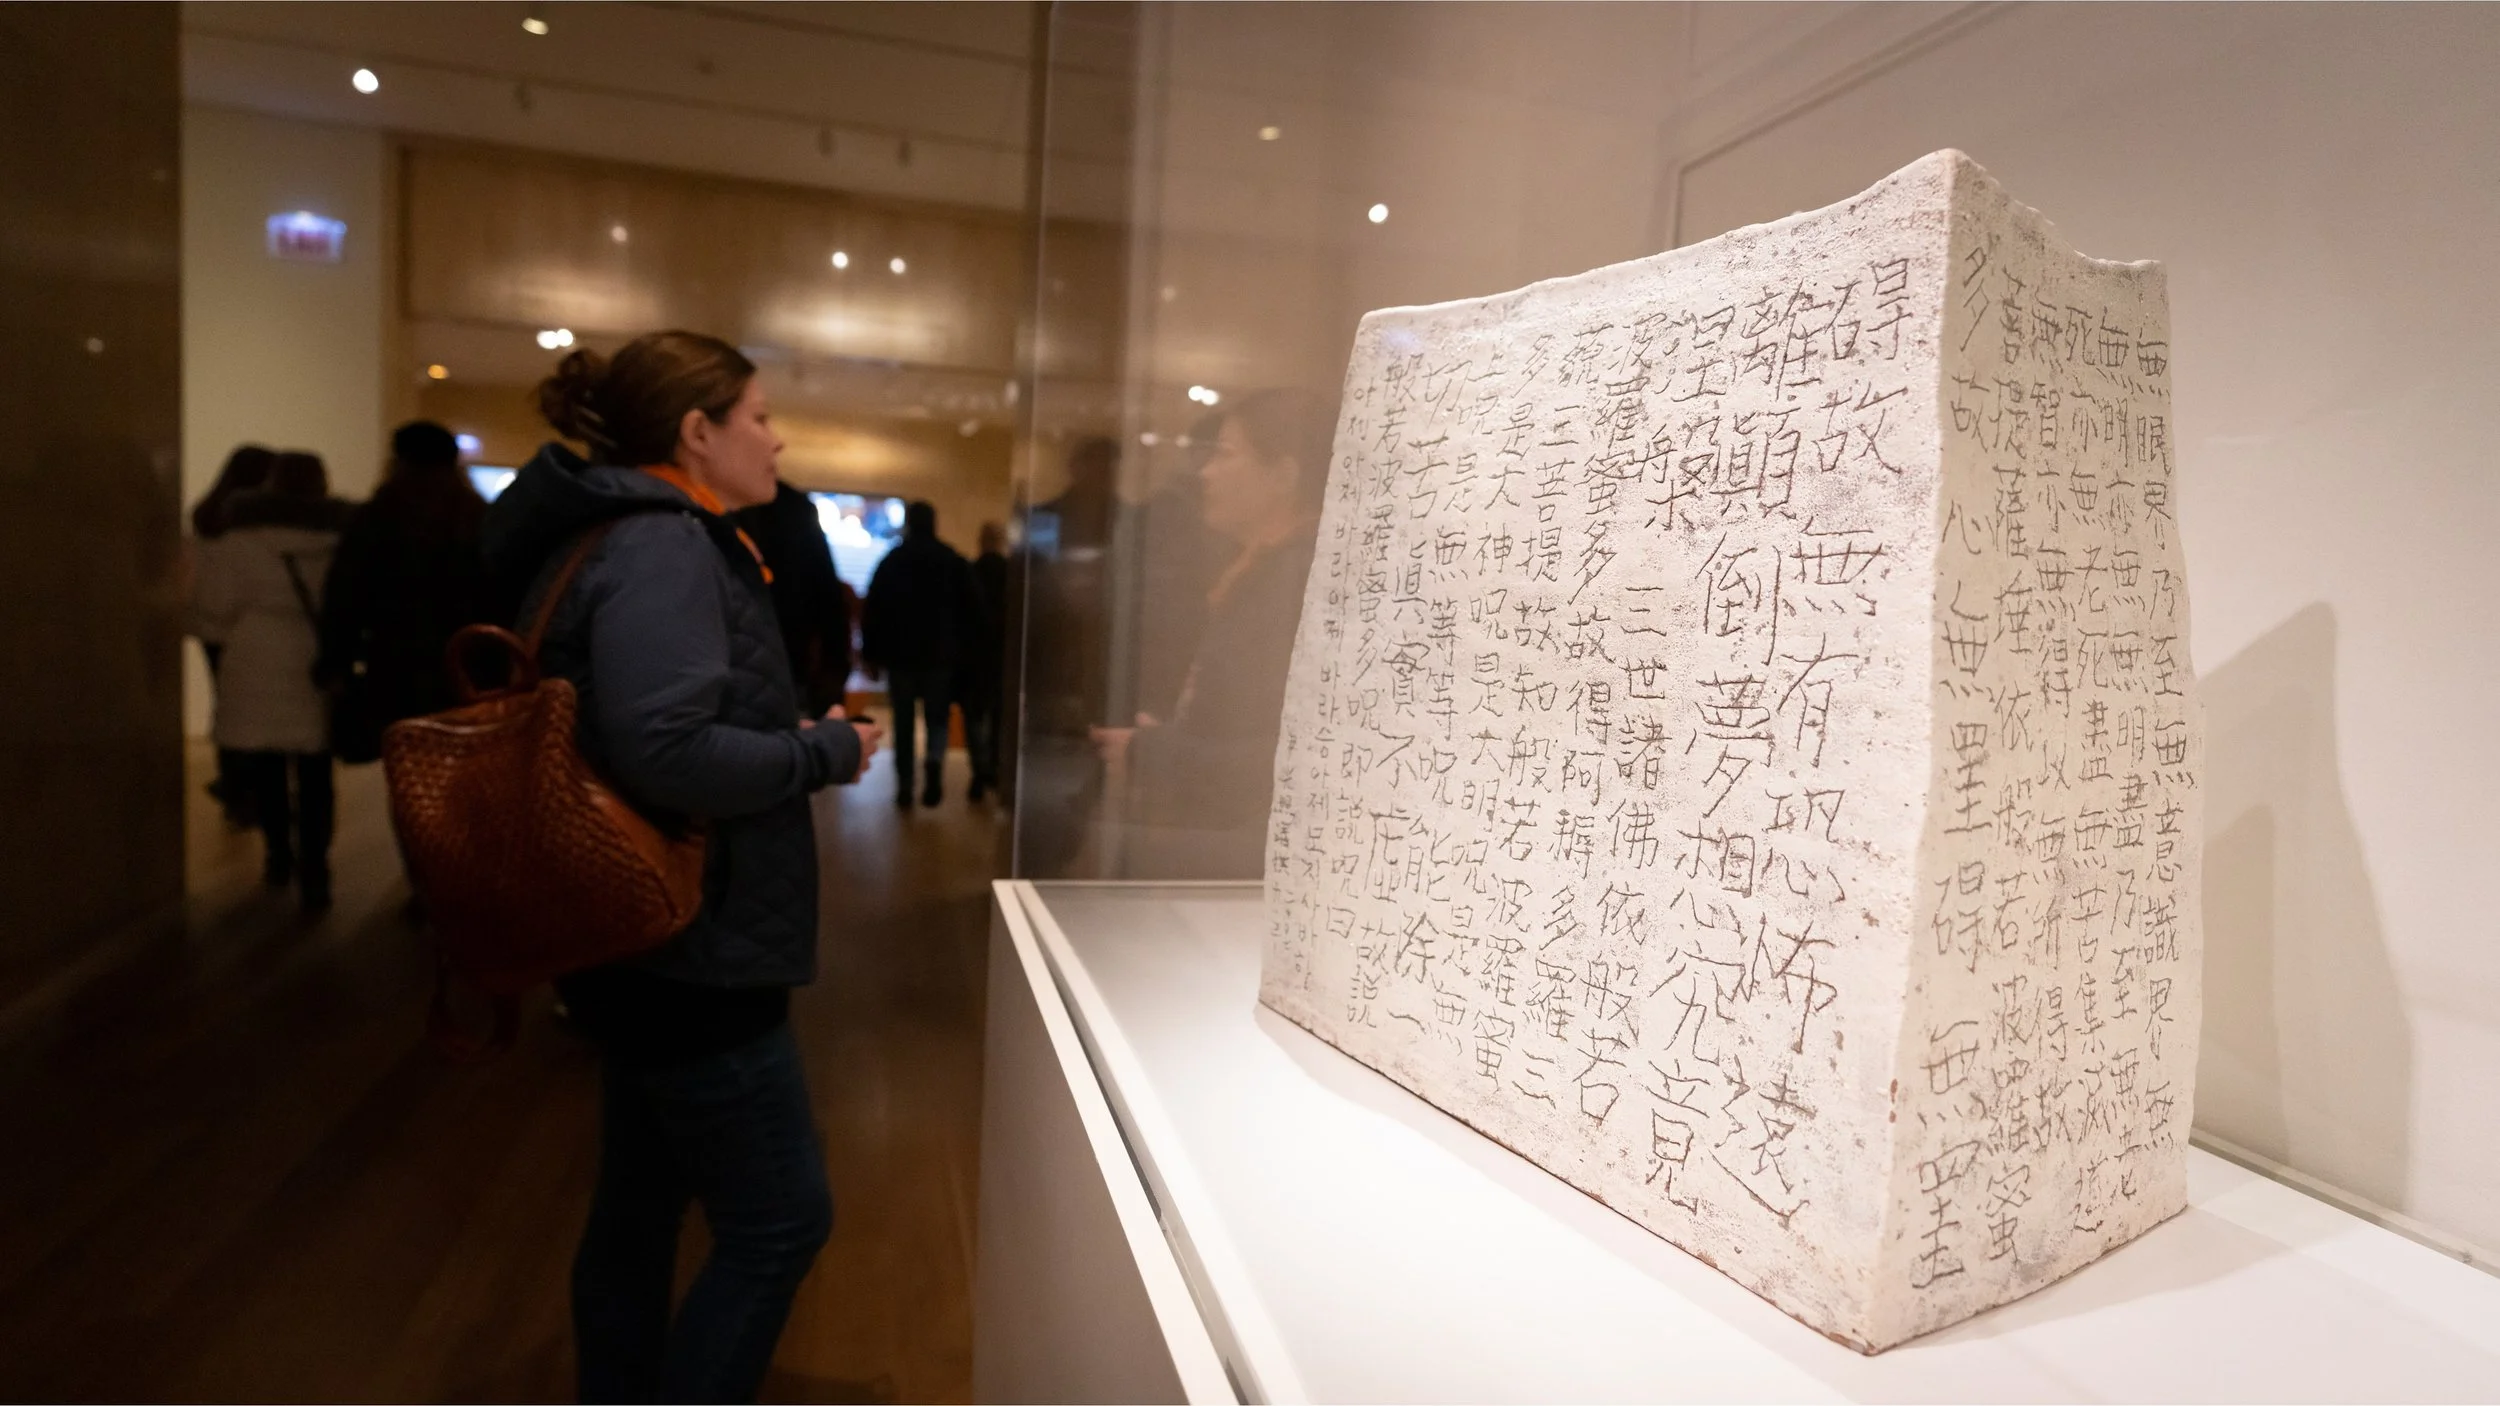 無眼界乃至無意識界無
無明亦無無明盡乃至無老
死亦無老死盡無苦集滅道
無智亦無得以無所得故
菩提薩埵依般若波羅蜜
多故心無罣碍無罣
碍故無有恐怖遠
離顚倒夢想究竟
涅槃三世諸佛依般若
波羅蜜多故得阿耨多羅三
藐三菩提故知般若波羅蜜
多是大神呪是大明呪是無
上呪是無等等呪能除一
切苦眞實不虛故說
般若波羅蜜多呪即說呪曰
아제아제바라아제바라승아제모지사바하